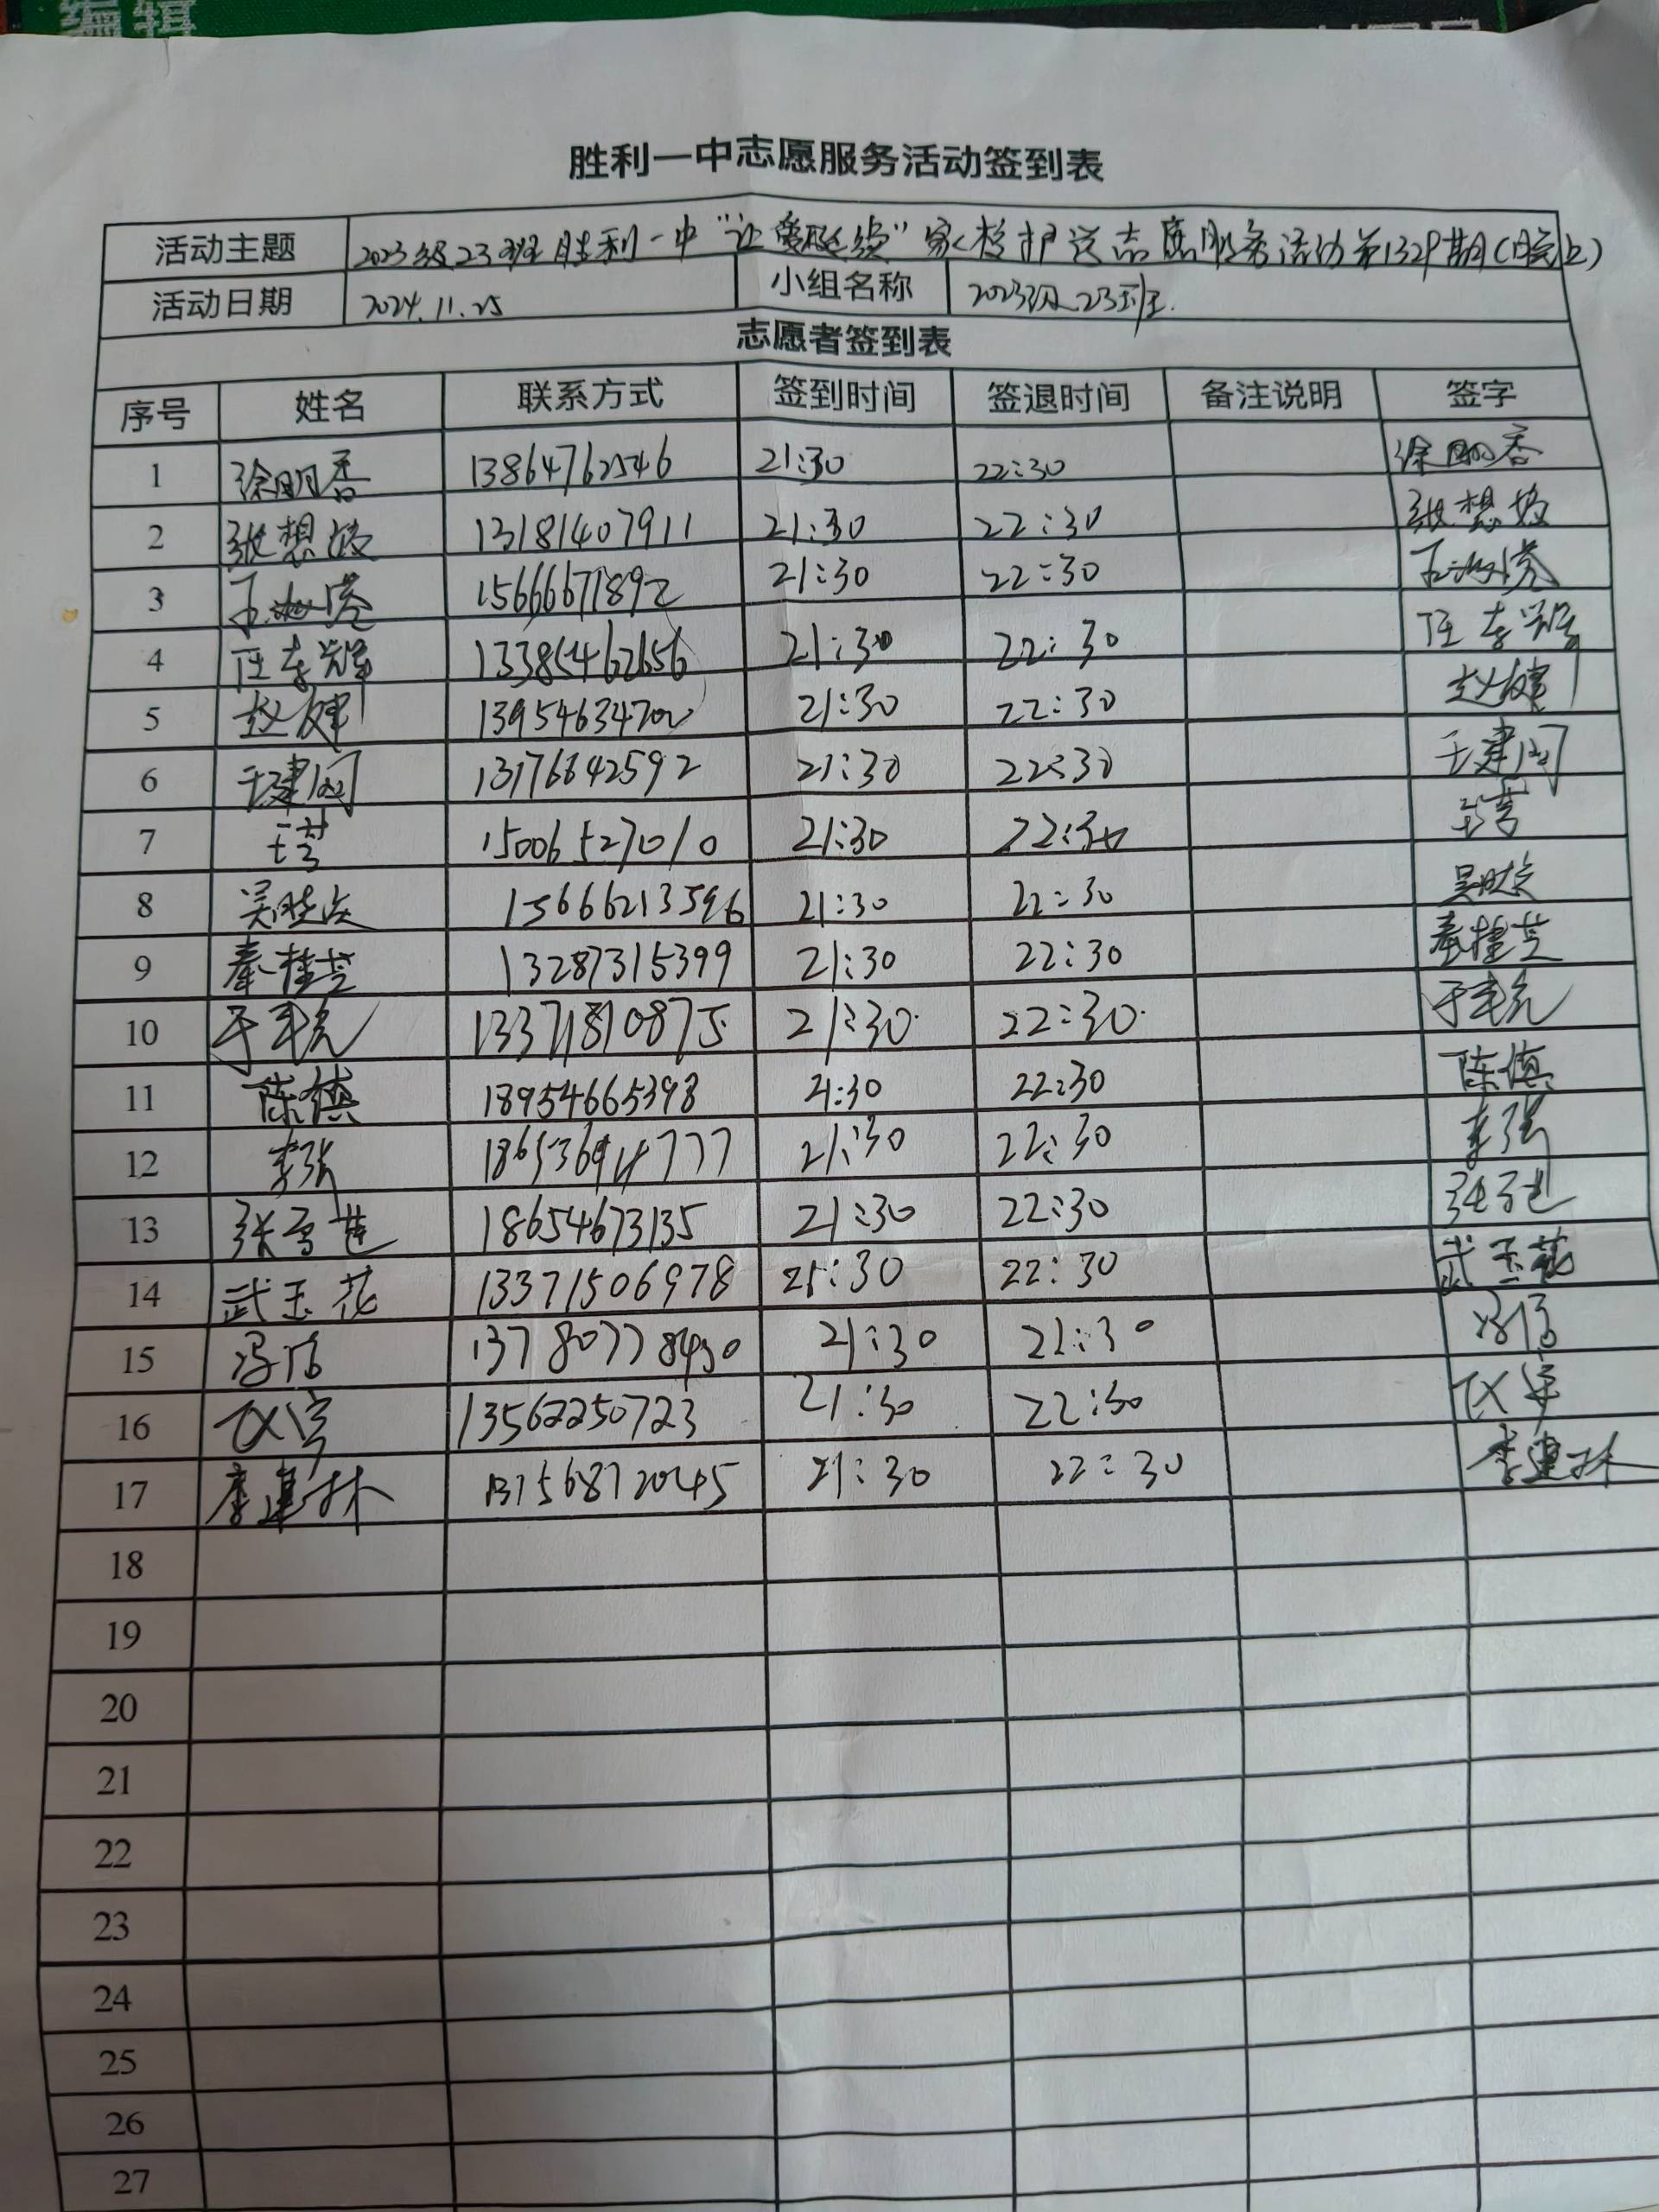 编辑
胜利一中志愿服务活动签到表
活动主题 2023级23班胜利一中“让爱延续”家校护送志愿服务活动第1329期(晚上)
活动日期 2024.11.25 小组名称 2023级23班.
志愿者签到表
序号 姓名 联系方式 签到时间 签退时间 备注说明 签字
1 徐明香 13864762546 21:30 22:30 徐明香
2 张想姣 13181407911 21:30 22:30 张想姣
3 15666671892 21:30 22:30
4 13385462656 21:30 22:30
5 赵健 13954634700 21:30 22:30 赵健
6 王建阁 13176642592 21:30 22:30 王建阁
7 15006527010 21:30 22:30
8 吴晓 15666213596 21:30 22:30 吴晓
9 秦桂芝 13287315399 21:30 22:30 秦桂芝
10 13371810875 21:30 22:30
11 陈慎 18954665398 21:30 22:30 陈慎
12 李强 18653694777 21:30 22:30 李强
13 张雪艳 18654673135 21:30 22:30
14 武玉花 13371506978 21:30 22:30 武玉花
15 13780778430 21:30 21:30
16 13562250723 21:30 22:30
17 李建林 13156872045 21:30 22:30 李建林
18
19
20
21
22
23
24
25
26
27